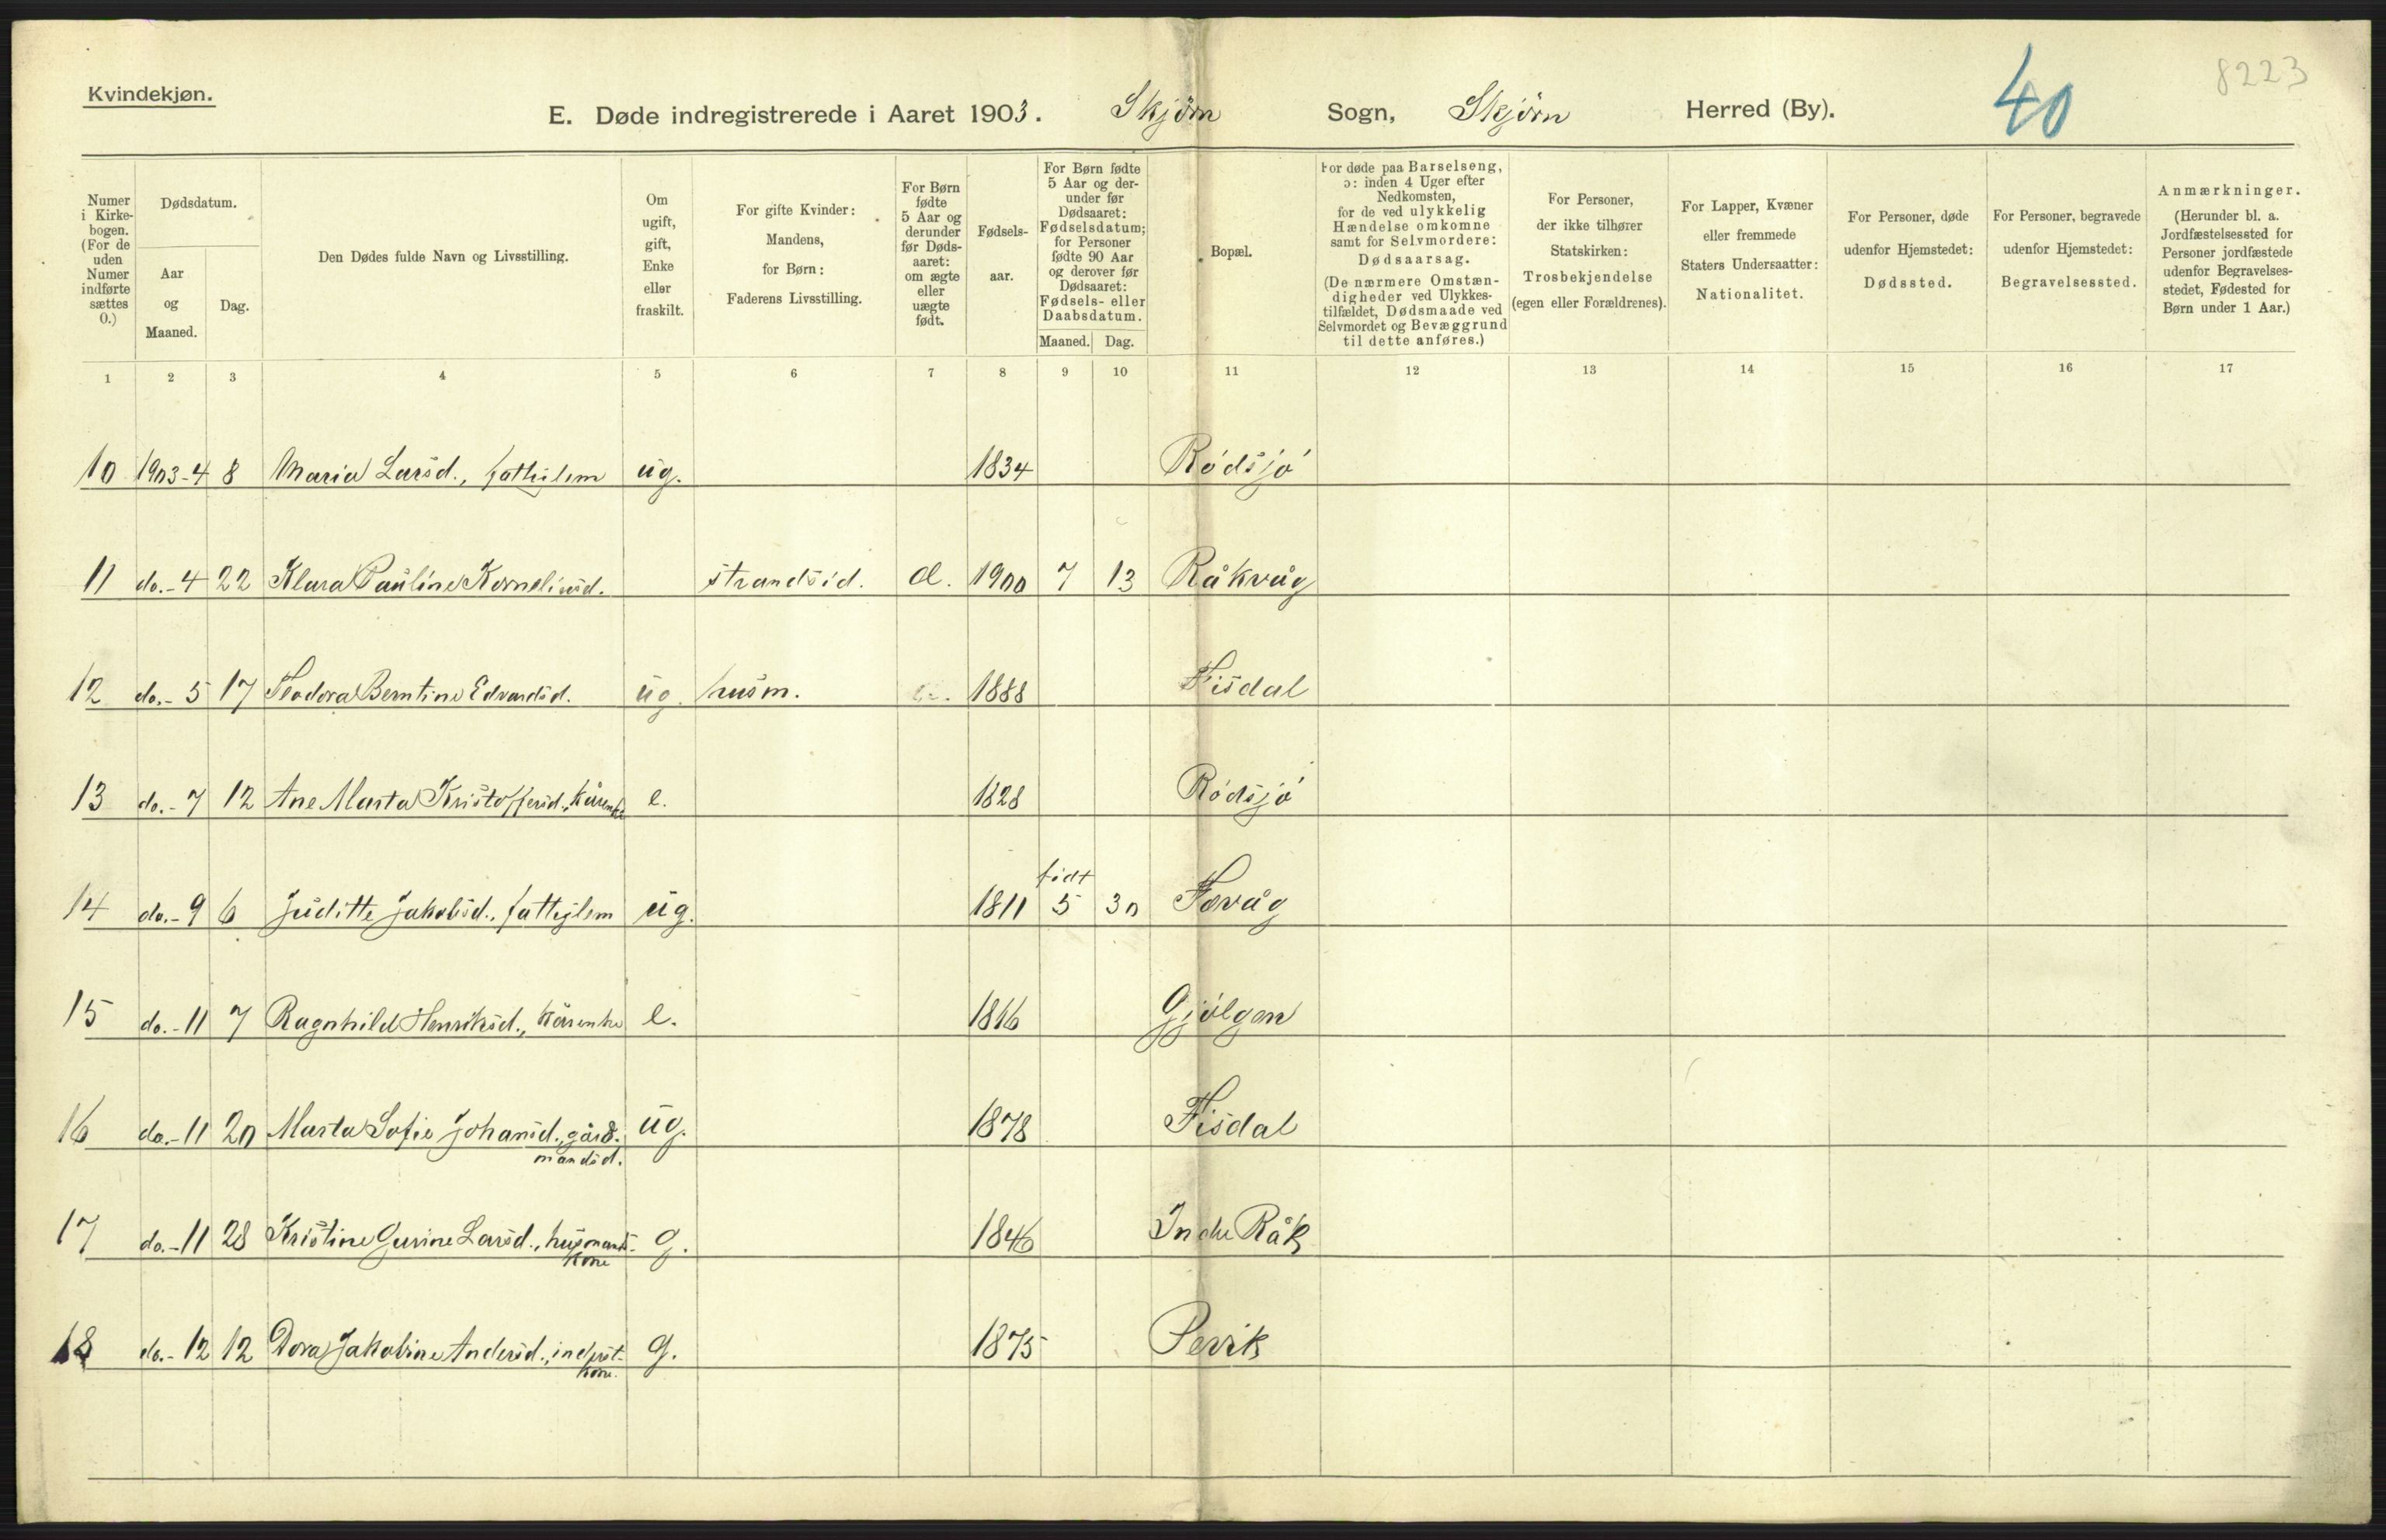 Kvindekjøn.
8223
40
E. Døde indregistrerede i Aaret 1903. Skjörn Sogn, Skjörn Herred (By).
Numer i Kirkebogen. (For de uden Numer indførte sættes 0.)
Dødsdatum.
Aar og Maaned.
Dag.
Den Dødes fulde Navn og Livsstilling.
Om ugift, gift, Enke eller fraskilt.
For gifte Kvinder: Mandens, for Børn: Faderens Livsstilling.
For Børn fødte 5 Aar og derunder før Dødsaaret: om ægte eller uægte født.
Fødselsaar.
For Børn fødte 5 Aar og derunder før Dødsaaret: Fødselsdatum; for Personer fødte 90 Aar og derover før Dødsaaret: Fødsels- eller Daabsdatum.
Maaned. Dag.
Bopæl.
For døde paa Barselseng, ɔ: inden 4 Uger efter Nedkomsten, for de ved ulykkelig Hændelse omkomne samt for Selvmordere: Dødsaarsag.
(De nærmere Omstændigheder ved Ulykkestilfældet, Dødsmaade ved Selvmordet og Bevæggrund til dette anføres.)
For Personer, der ikke tilhører Statskirken: Trosbekjendelse (egen eller Forældrenes).
For Lapper, Kvæner eller fremmede Staters Undersaatter: Nationalitet.
For Personer, døde udenfor Hjemstedet: Dødssted.
For Personer, begravede udenfor Hjemstedet: Begravelsessted.
Anmærkninger. (Herunder bl. a. Jordfæstelsessted for Personer jordfæstede udenfor Begravelsesstedet, Fødested for Børn under 1 Aar.)
1 2 3 4 5 6 7 8 9 10 11 12 13 14 15 16 17
10 1903-4 8 Maria Larsd., fattiglem ug. 1834 Rödsjö
11 do.-4 22 Klara Pauline Korneliusd. strandsid. 1900 7 13 Råkvåg
12 do.-5 17 Teodora Berntine Edvardsd. ug. husm. 1888 Fisdal
13 do.-7 12 Ane Marta Kristoffersd., kårenke e. 1828 Rödsjö
födt
14 do.-9 6 Juditte Jakobsd., fattiglem ug. 1811 5 30 Fævåg
15 do.-11 7 Ragnhild Henriksd., kårenke e. 1816 Gjölgen
16 do.-11 20 Marta Sofie Johansd., gård- ug. 1878 Fisdal
mandsd.
17 do.-11 28 Kristine Gurine Larsd., husmands- g. 1846 Indre Råk
kone
18 do.-12 12 Dora Jakobine Andersd., indrst. g. 1875 Pervik
kone.